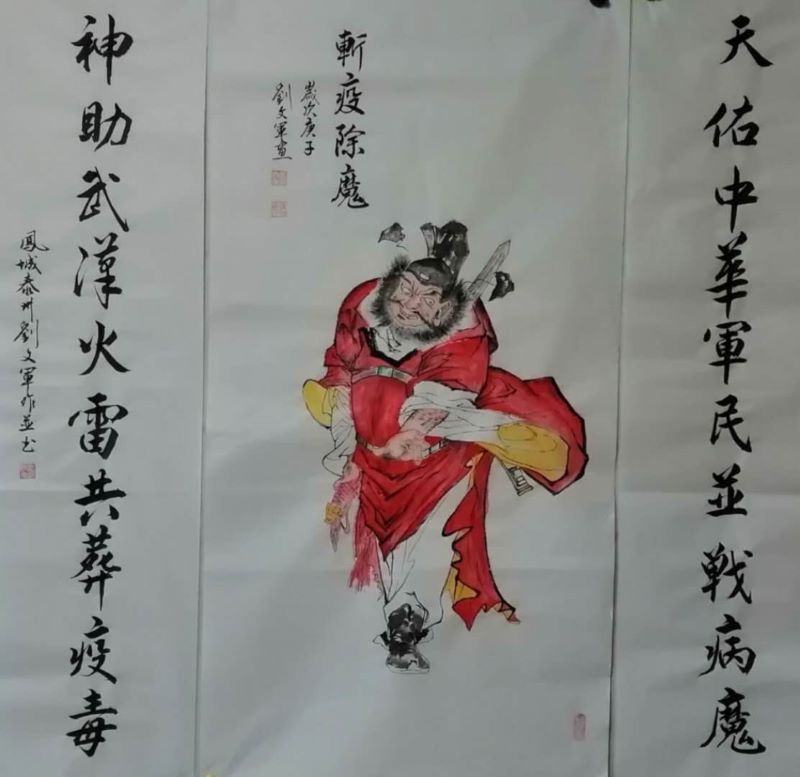 天佑中華軍民並戦病魔
斬疫除魔
歲次庚子
劉文軍画
神助武漢火雷共葬疫毒
鳳城泰州劉文軍作並书